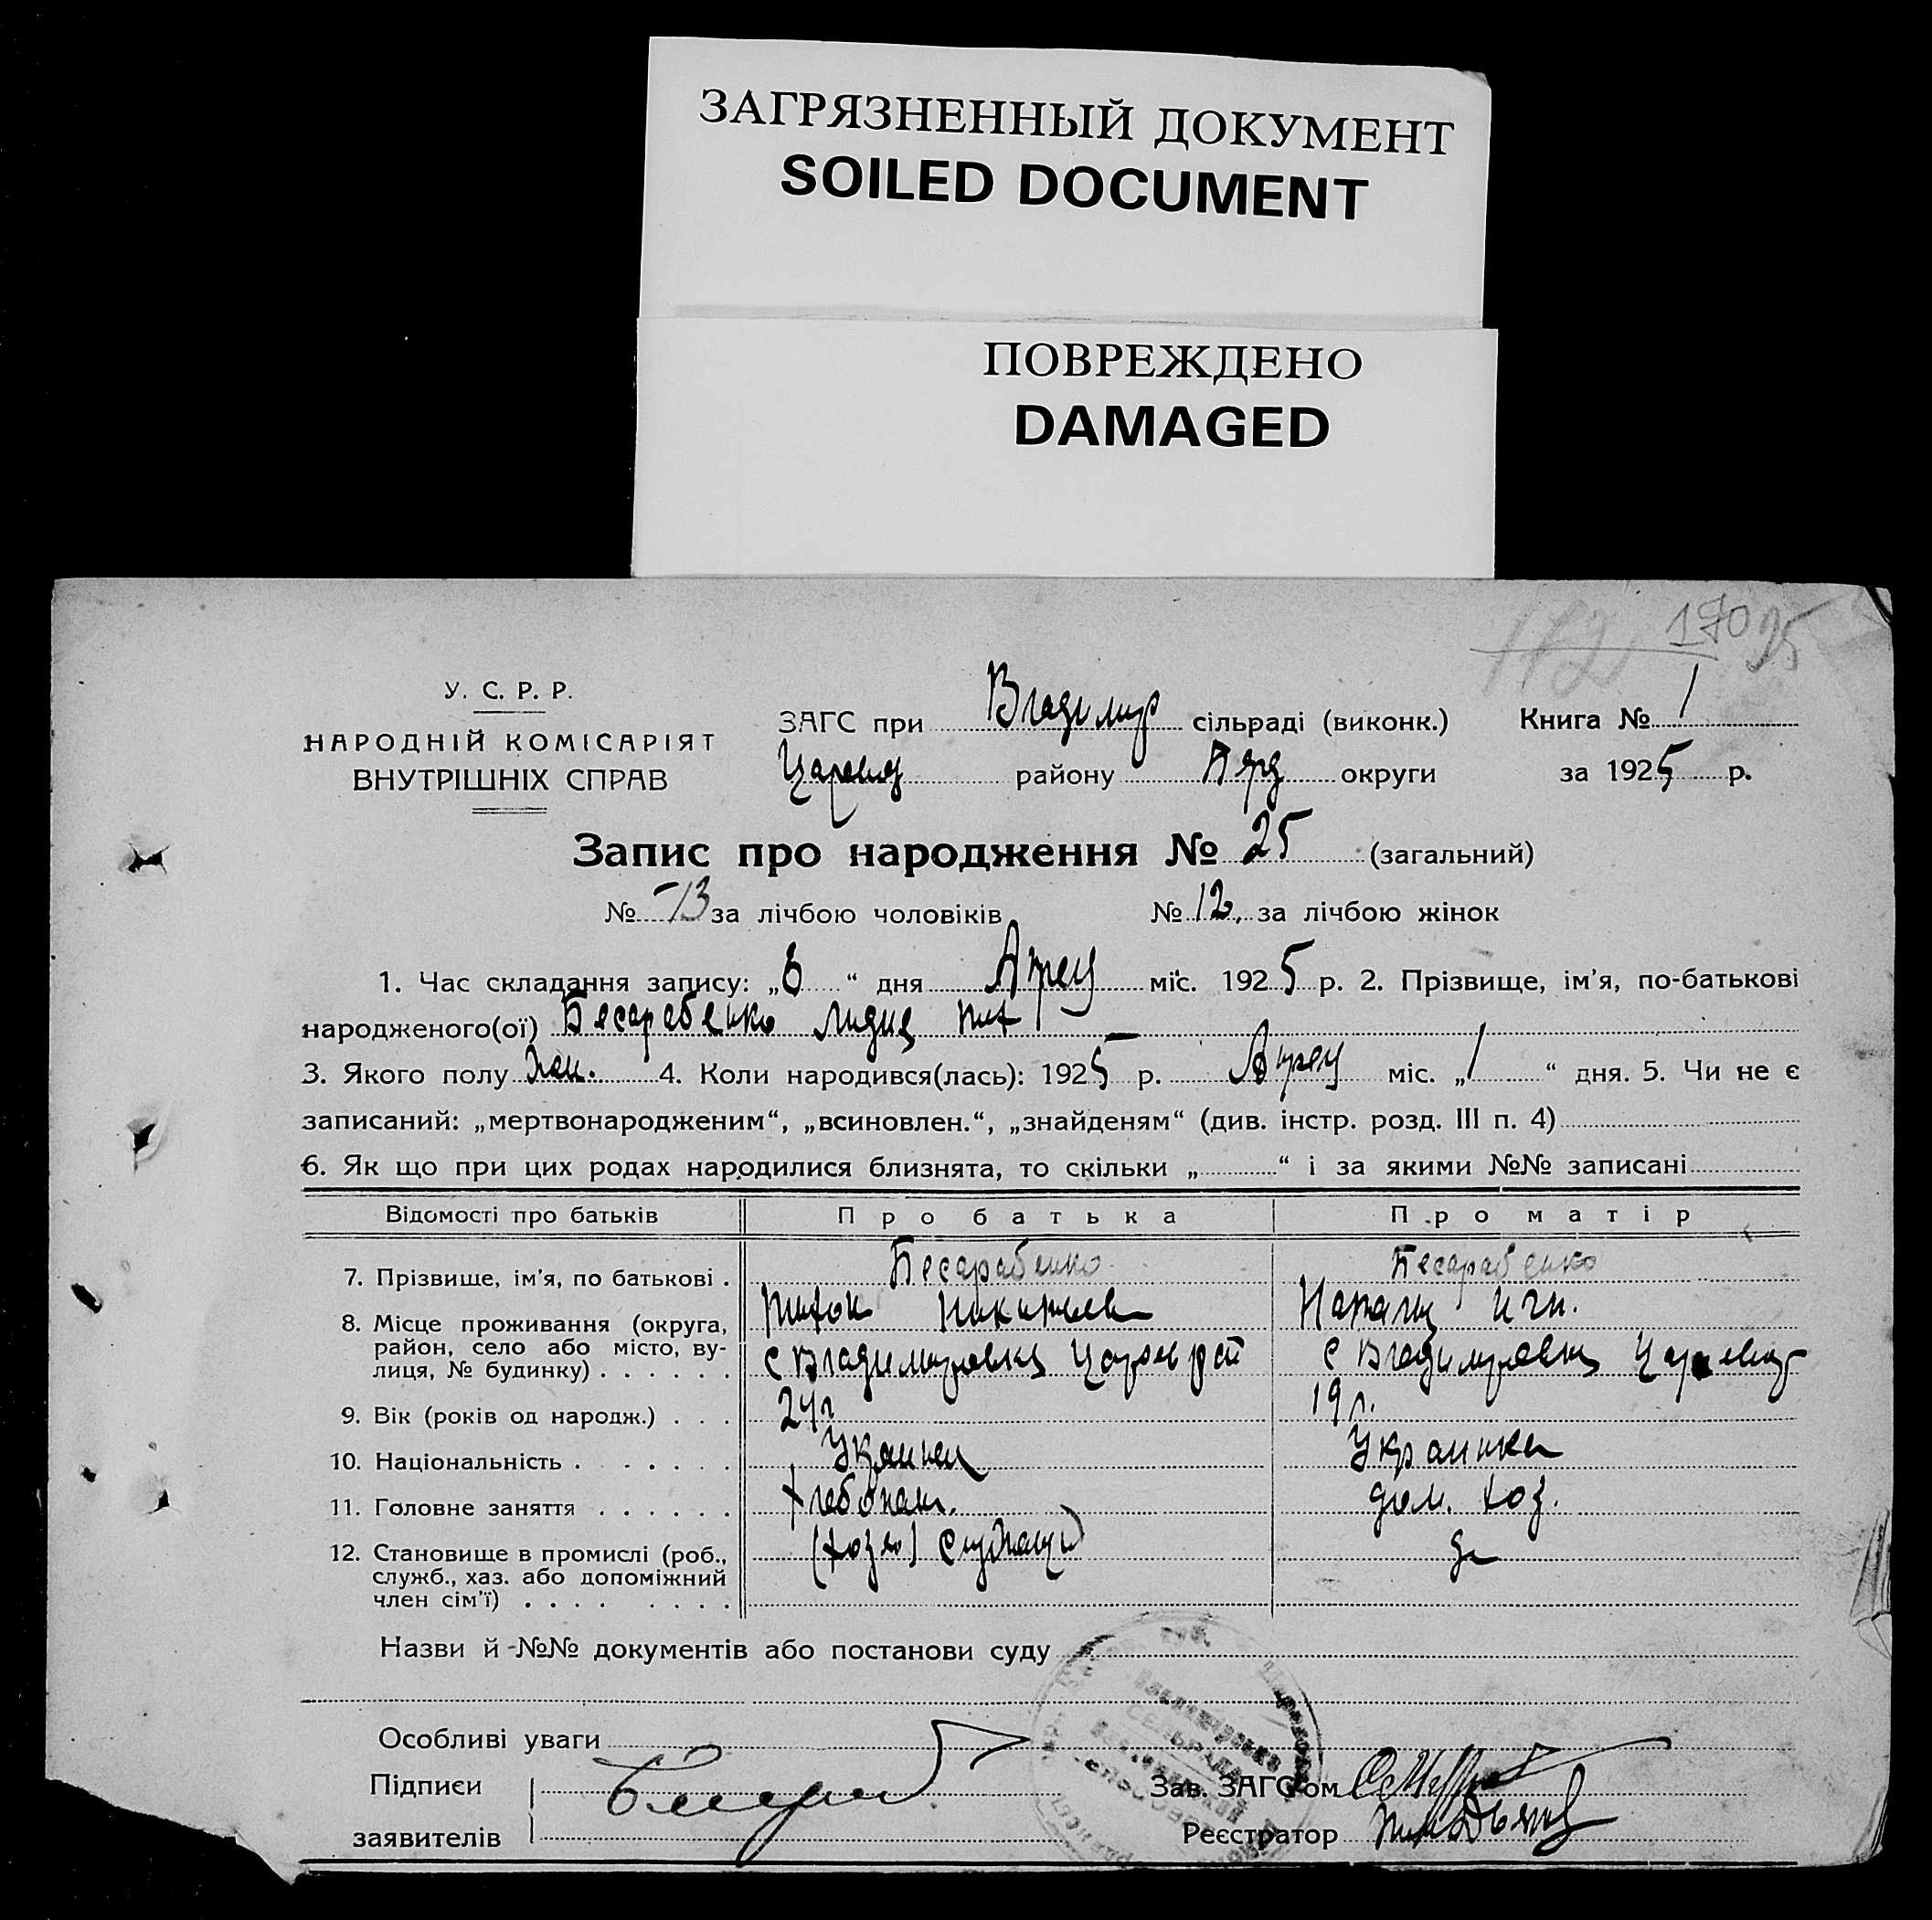 ЗАГРЯЗНЕННЫЙ ДОКУМЕНТ
SOILED DOCUMENT
ПОВРЕЖДЕНО
DAMAGED
112 170 25
У. С. Р. Р.
НАРОДНІЙ КОМІСАРІЯТ
ВНУТРІШНІХ СПРАВ
ЗАГС при Владимир сільраді (виконк.) Книга № 1
району округи за 1925 р.
Запис про народження № 25 (загальний)
№ 13 за лічбою чоловіків № 12. за лічбою жінок
1. Час складання запису: „8“ дня міс. 1925 р. 2. Прізвище, ім'я, по-батькові
народженого(ої) Бесарабенко Лидия Тих
3. Якого полу жен. 4. Коли народився(лась): 1925 р. міс. „1“ дня. 5. Чи не є
записаний: „мертвонародженим“, „всиновлен.“, „знайденям“ (див. інстр. розд. III п. 4)
6. Як що при цих родах народилися близнята, то скільки „ “ і за якими №№ записані
Відомості про батьків Про батька Про матір
7. Прізвище, ім'я, по батькові . Бесарабенко Бесарабенко
Тихон Наталия Игн.
8. Місце проживання (округа, район, село або місто, вулиця, № будинку) . . . . . . с Владимировка с Владимировка
9. Вік (років од народж.) . . . 24 г 19 л.
10. Національність . . . . . . Украинка
11. Головне заняття . . . . . . хлебопаш. дом. хоз.
12. Становище в промислі (роб., служб., хаз. або допоміжний член сім'ї) . . . . . . . .
Назви й №№ документів або постанови суду
Особливі уваги
Підписи
заявителів
Зав. ЗАГС'ом
Реєстратор